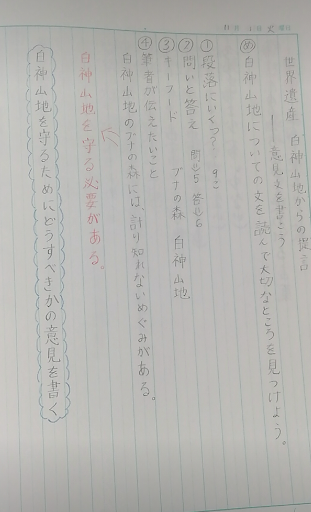 世界遺産 白神山地からの提言
―意見文を書こう
㋱白神山地についての文を読んで大切なところを見つけよう。
①段落はいくつ? 9こ
②問いと答え 問い5 答え6
③キーワード ブナの森 白神山地
④筆者が伝えたいこと
白神山地のブナの森には、計り知れないめぐみがある。
白神山地を守る必要がある。
白神山地を守るためにどうすべきかの意見を書く